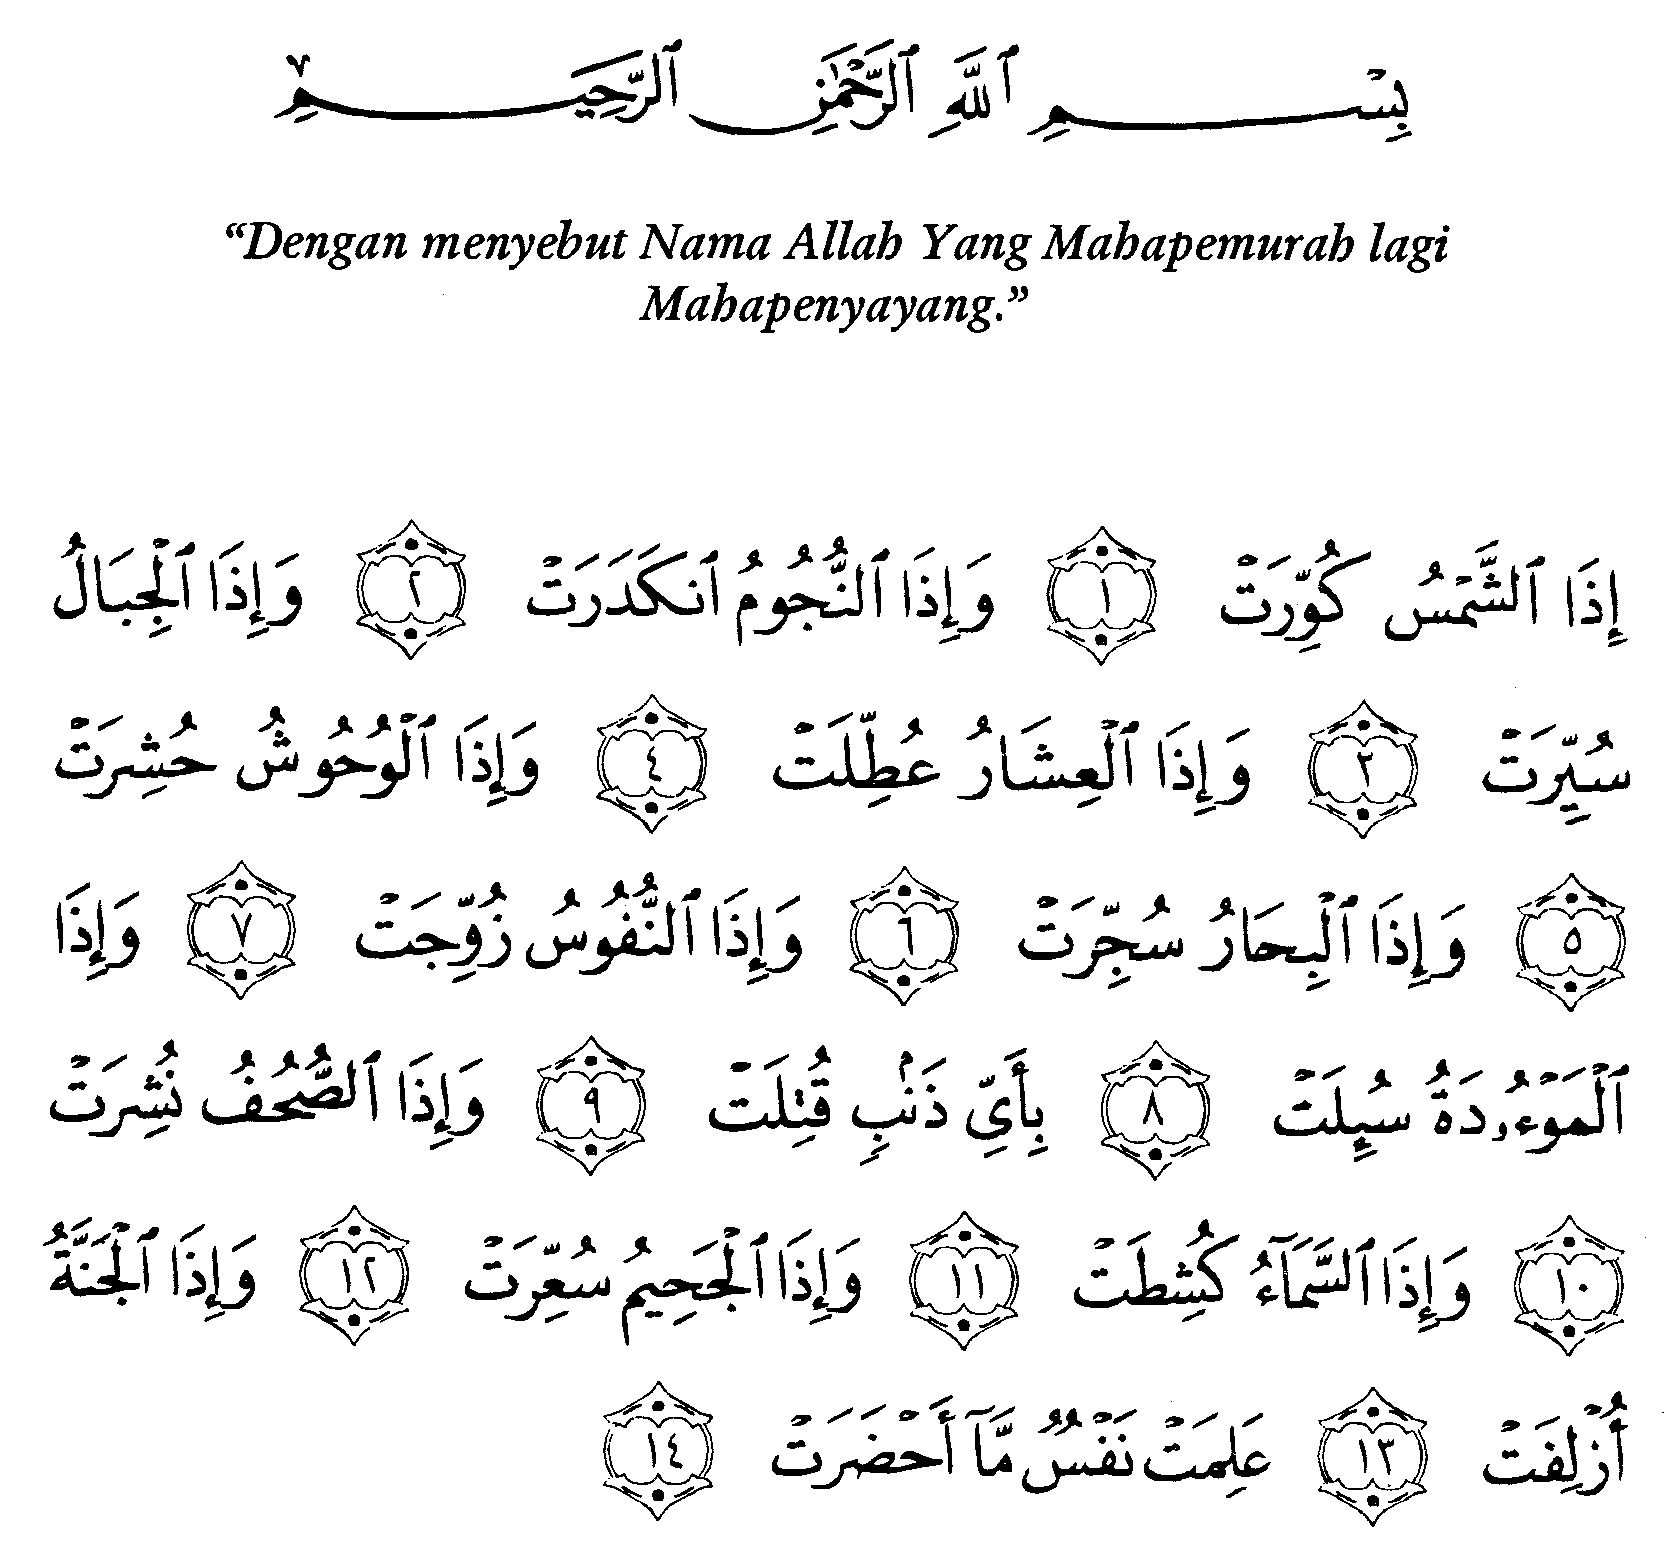 بِسْمِ ٱللَّهِ ٱلرَّحْمَٰنِ ٱلرَّحِيمِ
“Dengan menyebut Nama Allah Yang Mahapemurah lagi
Mahapenyayang.”
إِذَا ٱلشَّمْسُ كُوِّرَتْ ١ وَإِذَا ٱلنُّجُومُ ٱنكَدَرَتْ ٢ وَإِذَا ٱلْجِبَالُ
سُيِّرَتْ ٣ وَإِذَا ٱلْعِشَارُ عُطِّلَتْ ٤ وَإِذَا ٱلْوُحُوشُ حُشِرَتْ
٥ وَإِذَا ٱلْبِحَارُ سُجِّرَتْ ٦ وَإِذَا ٱلنُّفُوسُ زُوِّجَتْ ٧ وَإِذَا
ٱلْمَوْءُۥدَةُ سُئِلَتْ ٨ بِأَيِّ ذَنۢبٍ قُتِلَتْ ٩ وَإِذَا ٱلصُّحُفُ نُشِرَتْ
١٠ وَإِذَا ٱلسَّمَآءُ كُشِطَتْ ١١ وَإِذَا ٱلْجَحِيمُ سُعِّرَتْ ١٢ وَإِذَا ٱلْجَنَّةُ
أُزْلِفَتْ ١٣ عَلِمَتْ نَفْسٌ مَّآ أَحْضَرَتْ ١٤